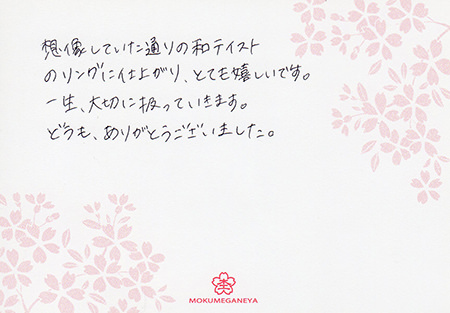 想像していた通りの和テイスト
のリングに仕上がり、とても嬉しいです。
一生、大切に扱っていきます。
どうも、ありがとうございました。
MOKUMEGANEYA